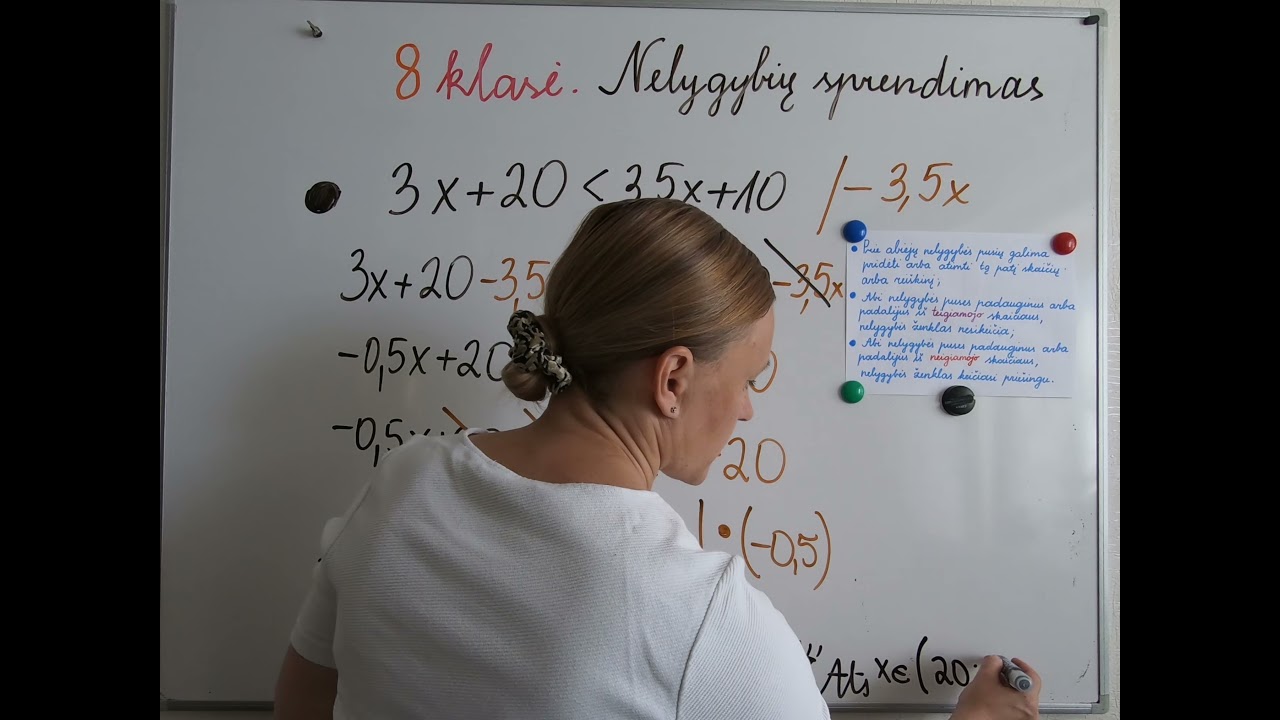 8 klasė. Nelygybių sprendimas
3x+20 < 3,5x+10 /- 3,5x
3x+20-3,5 -3,5x
-0,5x+20 0
-0,5x 20
| • (-0,5)
Ats x∈(20;
• Prie abiejų nelygybės pusių galima
pridėti arba atimti tą patį skaičių
arba reiškinį;
• Abi nelygybės puses padauginus arba
padalijus iš teigiamojo skaičiaus,
nelygybės ženklas nesikeičia;
• Abi nelygybės puses padauginus arba
padalijus iš neigiamojo skaičiaus,
nelygybės ženklas keičiasi priešingu.